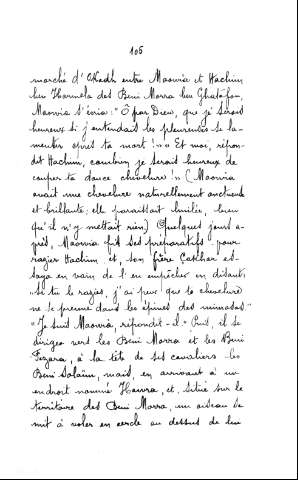 106
marché d'Okadh entre Maowia et Hachim
ben Harmela des Beni Morra ben Ghatafan,
Maowia s'écria: "Ô par Dieu, que je serais
heureux si j'entendais les pleureuses se la-
menter après ta mort!" "Et moi, répon-
dit Hachim, combien je serais heureux de
couper ta douce chevelure!" (Maowia
avait une chevelure naturellement onctueuse
et brillante; elle paraissait huilée, bien
qu'il n'y mettait rien) Quelques jours a-
près, Maowia fit ses préparatifs pour
razier Hachim et, son frère Çakhar es-
saya en vain de l'en empêcher en disant:
"Si tu le razies, j'ai peur que ta chevelure
ne se prenne dans les épines des mimosas."
"Je suis Maowia, répondit-il." Puis, il se
dirigea vers les Beni Morra et les Beni
Fezara, à la tête de ses cavaliers les
Beni Solaïm, mais, en arrivant à un
endroit nommé Hawra, et situé sur le
territoire des Beni Morra, un oiseau se
mit à voler en cercle au dessus de lui